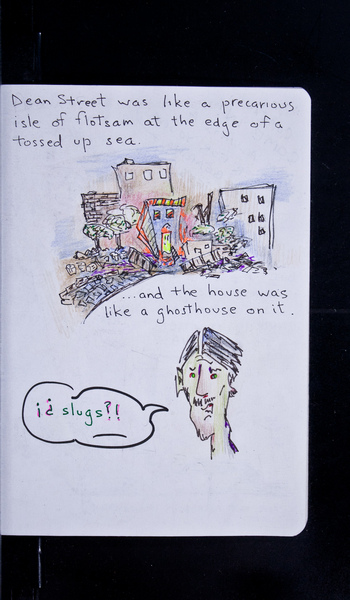 Dean Street was like a precarious
isle of flotsam at the edge of a
tossed up sea.
...and the house was
like a ghosthouse on it.
¡¿ slugs?!